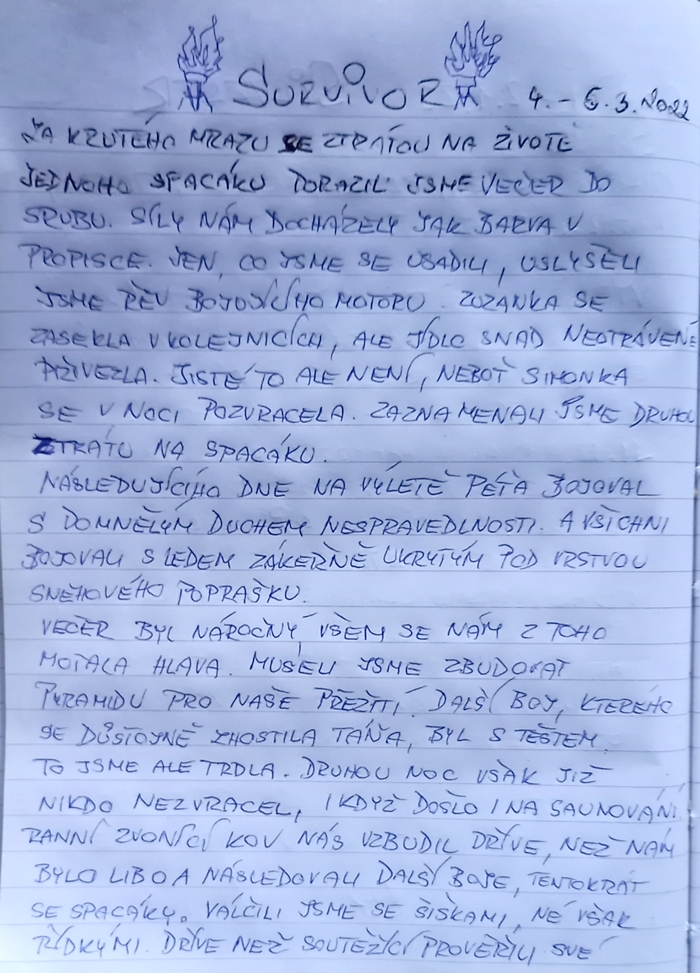 SURVIVOR 4. - 6.3.2022
ZA KRUTÉHO MRAZU SE ZTRÁTOU NA ŽIVOTĚ
JEDNOHO SPACÁKU DORAZILI JSME VEČER DO
SRUBU. SÍLY NÁM DOCHÁZELY JAK BARVA V
PROPISCE. JEN, CO JSME SE USADILI, USLYŠELI
JSME ŘEV BOJOVÍCÍHO MOTORU. ZUZANKA SE
ZASEKLA V KOLEJNICÍCH, ALE JÍDLO SNAD NEOTRÁVENÉ
PŘIVEZLA. JISTÉ TO ALE NENÍ, NEBOŤ SIMONKA
SE V NOCI POZVRACELA. ZAZNAMENALI JSME DRUHOU
ZTRÁTU NA SPACÁKU.
NÁSLEDUJÍCÍHO DNE NA VÝLETĚ PÉŤA BOJOVAL
S DOMNĚLÝM DUCHEM NESPRAVEDLNOSTI. A VŠICHNI
BOJOVALI S LEDEM ZÁKEŘNĚ UKRYTÝM POD VRSTVOU
SNĚHOVÉHO POPRAŠKU.
VEČER BYL NÁROČNÝ VŠEM SE NÁM Z TOHO
MOTALA HLAVA. MUSELI JSME ZBUDOVAT
PYRAMIDU PRO NAŠE PŘEŽITÍ. DALŠÍ BOJ, KTERÉHO
SE DŮSTOJNĚ ZHOSTILA TÁŇA, BYL S TĚSTEM.
TO JSME ALE TRDLA. DRUHOU NOC VŠAK JIŽ
NIKDO NEZVRACEL, I KDYŽ DOŠLO I NA SAUNOVÁNÍ.
RANNÍ ZVONÍCÍ KOV NÁS VZBUDIL DŘÍVE, NEŽ NÁM
BYLO LIBO A NÁSLEDOVALI DALŠÍ BOJE, TENTOKRÁT
SE SPACÁKY. VÁLČILI JSME SE ŠIŠKAMI, NE VŠAK
ŘÍDKÝMI. DŘÍVE NEŽ SOUTĚŽÍCÍ PROVĚŘILI SVÉ